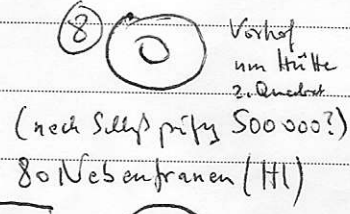 8
Vorhof
um Hütte
z. Quadrat
(nach Selbstprüfg 500 000?)
80 Nebenfrauen (HI)